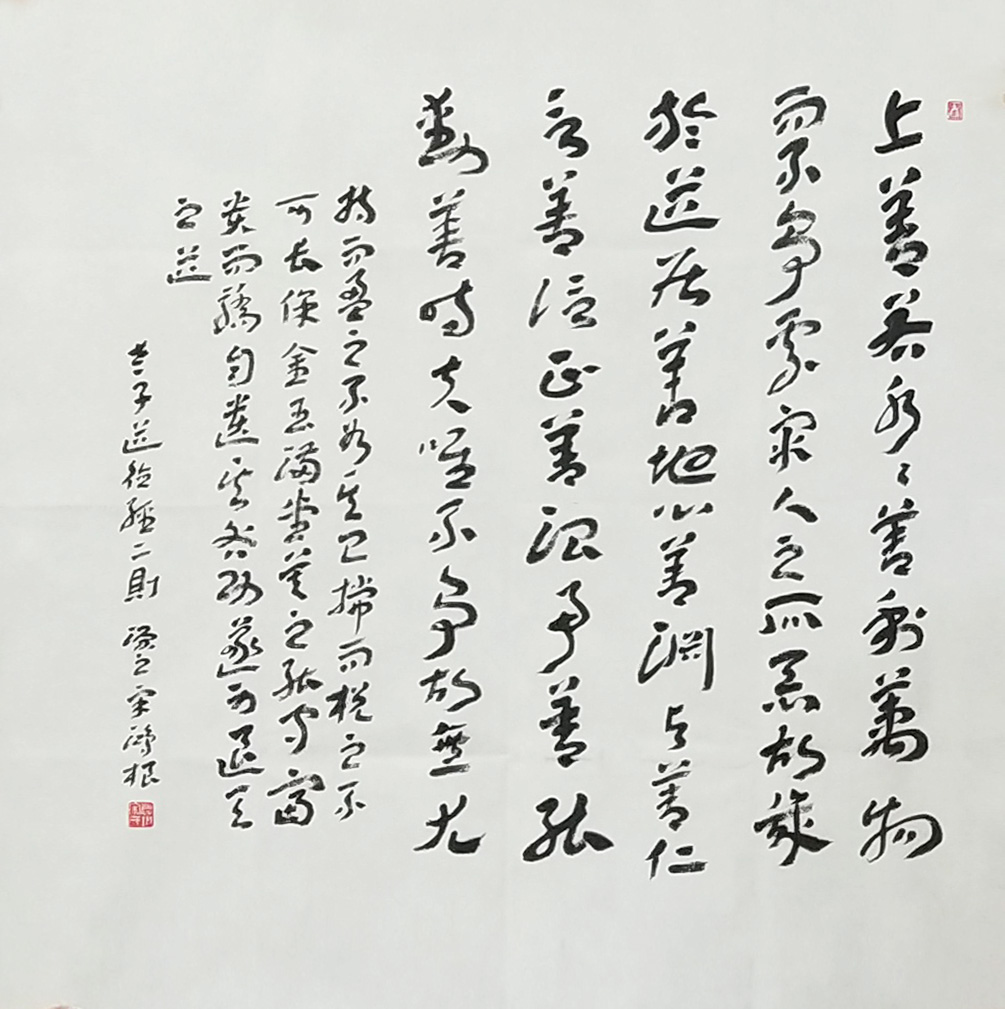 上善若水水善利萬物
而不爭處衆人之所惡故幾
於道居善地心善淵與善仁
言善信正善治事善能
動善時夫唯不爭故無尤
持而盈之不如其已揣而梲之不
可長保金玉滿堂莫之能守富
貴而驕自遺其咎功遂身退天
之道
老子道德經二則 宋鴻根